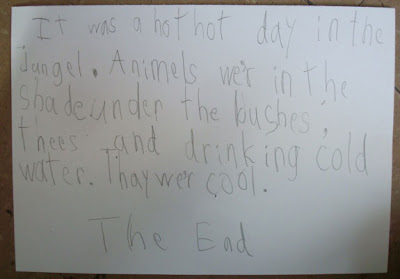 It was a hot hot day in the
jungel. Animels we'r in the
shade under the bushes,
thees and drinking cold
water. Thay we'r cool.
The End